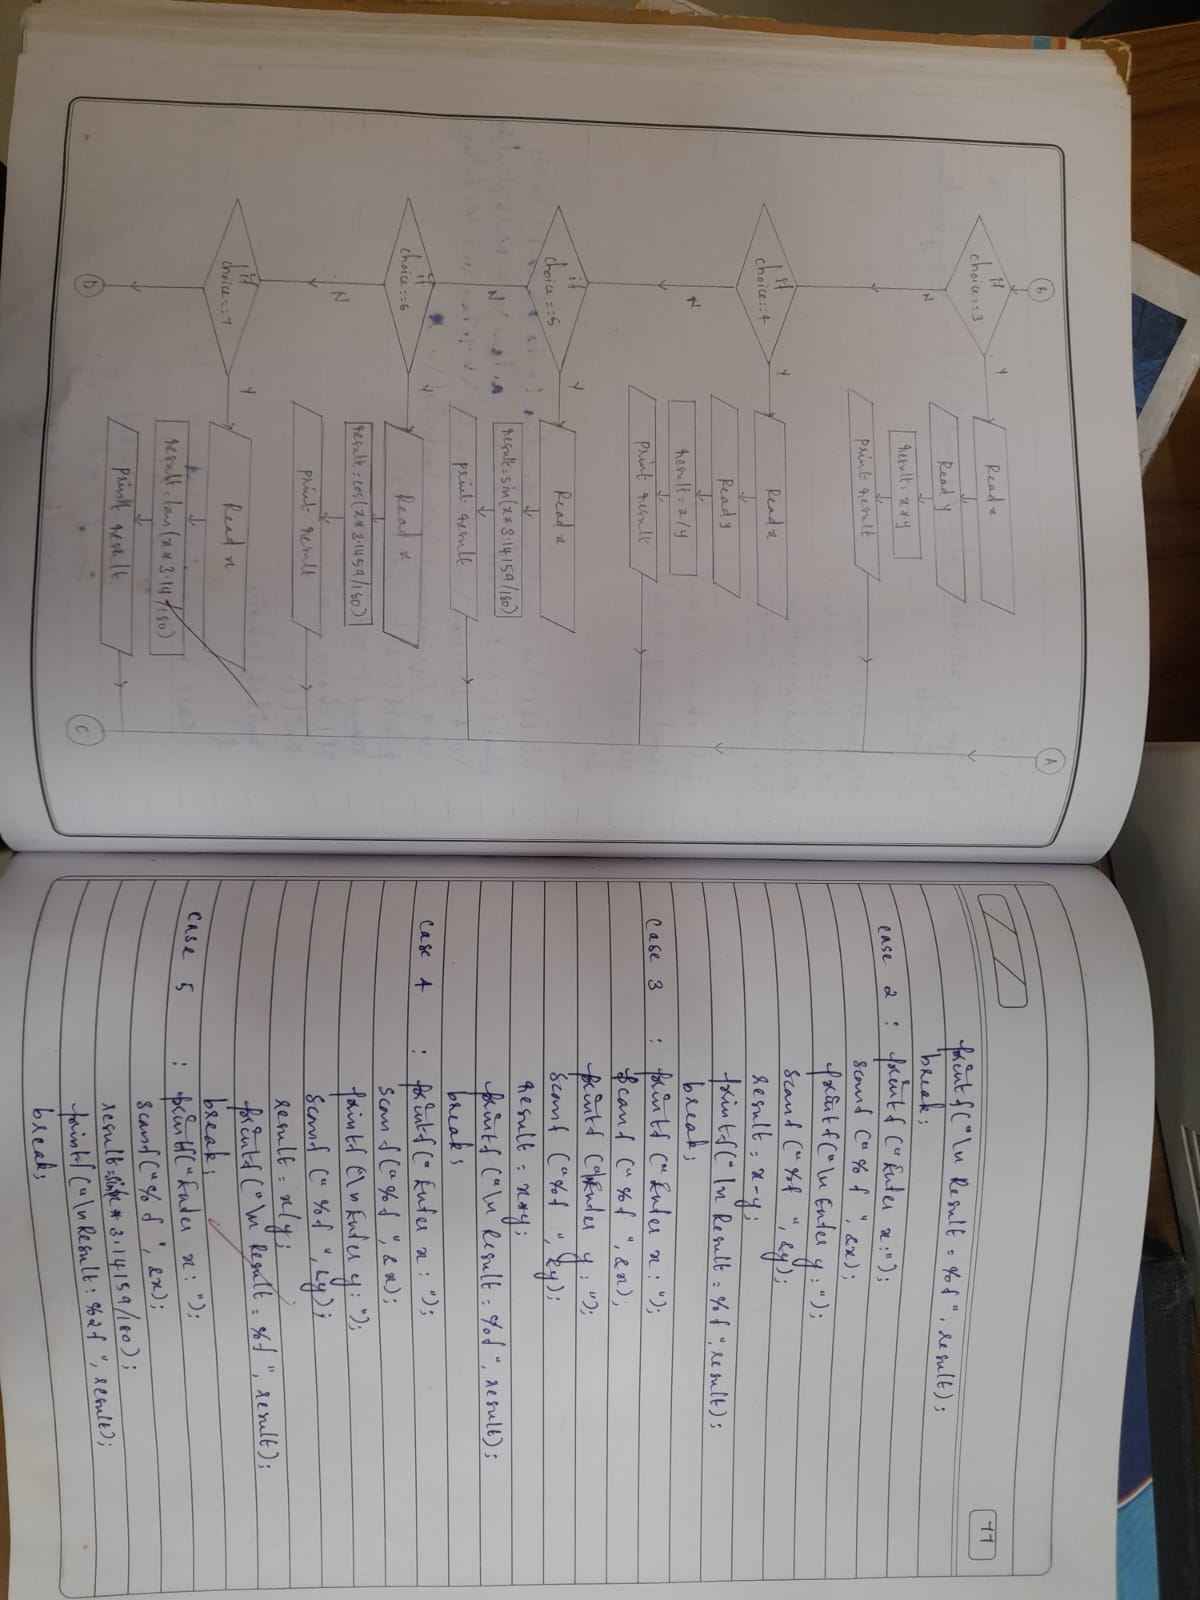 B
If
choice==3
Y
N
Read x
Read y
result=x*y
print result
A
if
choice==4
Y
N
Read x
Read y
result=x/y
print result
if
choice==5
Y
N
Read x
result=sin(x*3.14159/180)
print result
if
choice==6
Y
N
Read x
result=cos(x*3.1459/180)
print result
if
choice==7
Y
Read x
result=tan(x*3.14/180)
print result
D
C
11
printf("\n Result = %f", result);
break;
case 2 : printf("Enter x:");
scanf("%f",&x);
printf("\n Enter y:");
scanf("%f",&y);
result = x-y;
printf("\n Result = %f",result);
break;
Case 3 : printf("Enter x:");
scanf("%f",&x);
printf("Enter y:");
scanf("%f",&y);
result = x*y;
printf("\n Result = %f", result);
break;
Case 4 : printf("Enter x:");
scanf("%f",&x);
printf("\n Enter y:");
scanf("%f",&y);
result = x/y;
printf("\n Result = %f", result);
break;
case 5 : printf("Enter x:");
scanf("%f",&x);
* 3.14159/180);
printf("\n Result = %2f", result);
break;